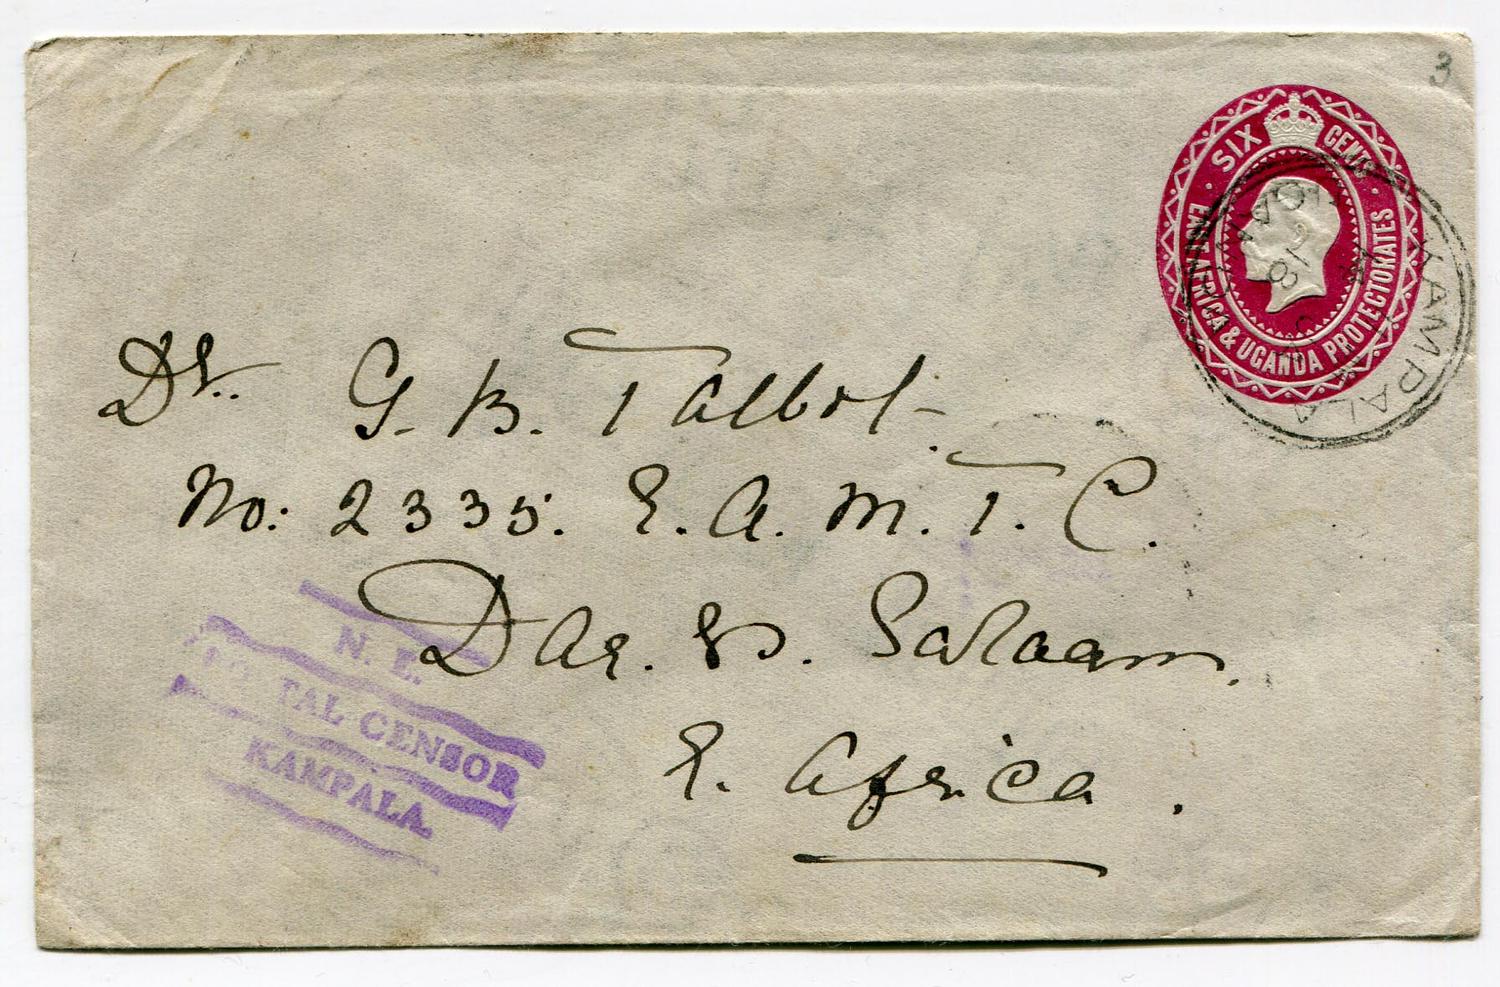 3
SIX CENTS
EAST AFRICA & UGANDA PROTECTORATES
KAMPALA
18
Dr. G. B. Talbot
No: 2335. E. A. M. T. C.
Dar. Es. Salaam.
E. Africa.
N. E.
POSTAL CENSOR
KAMPALA.